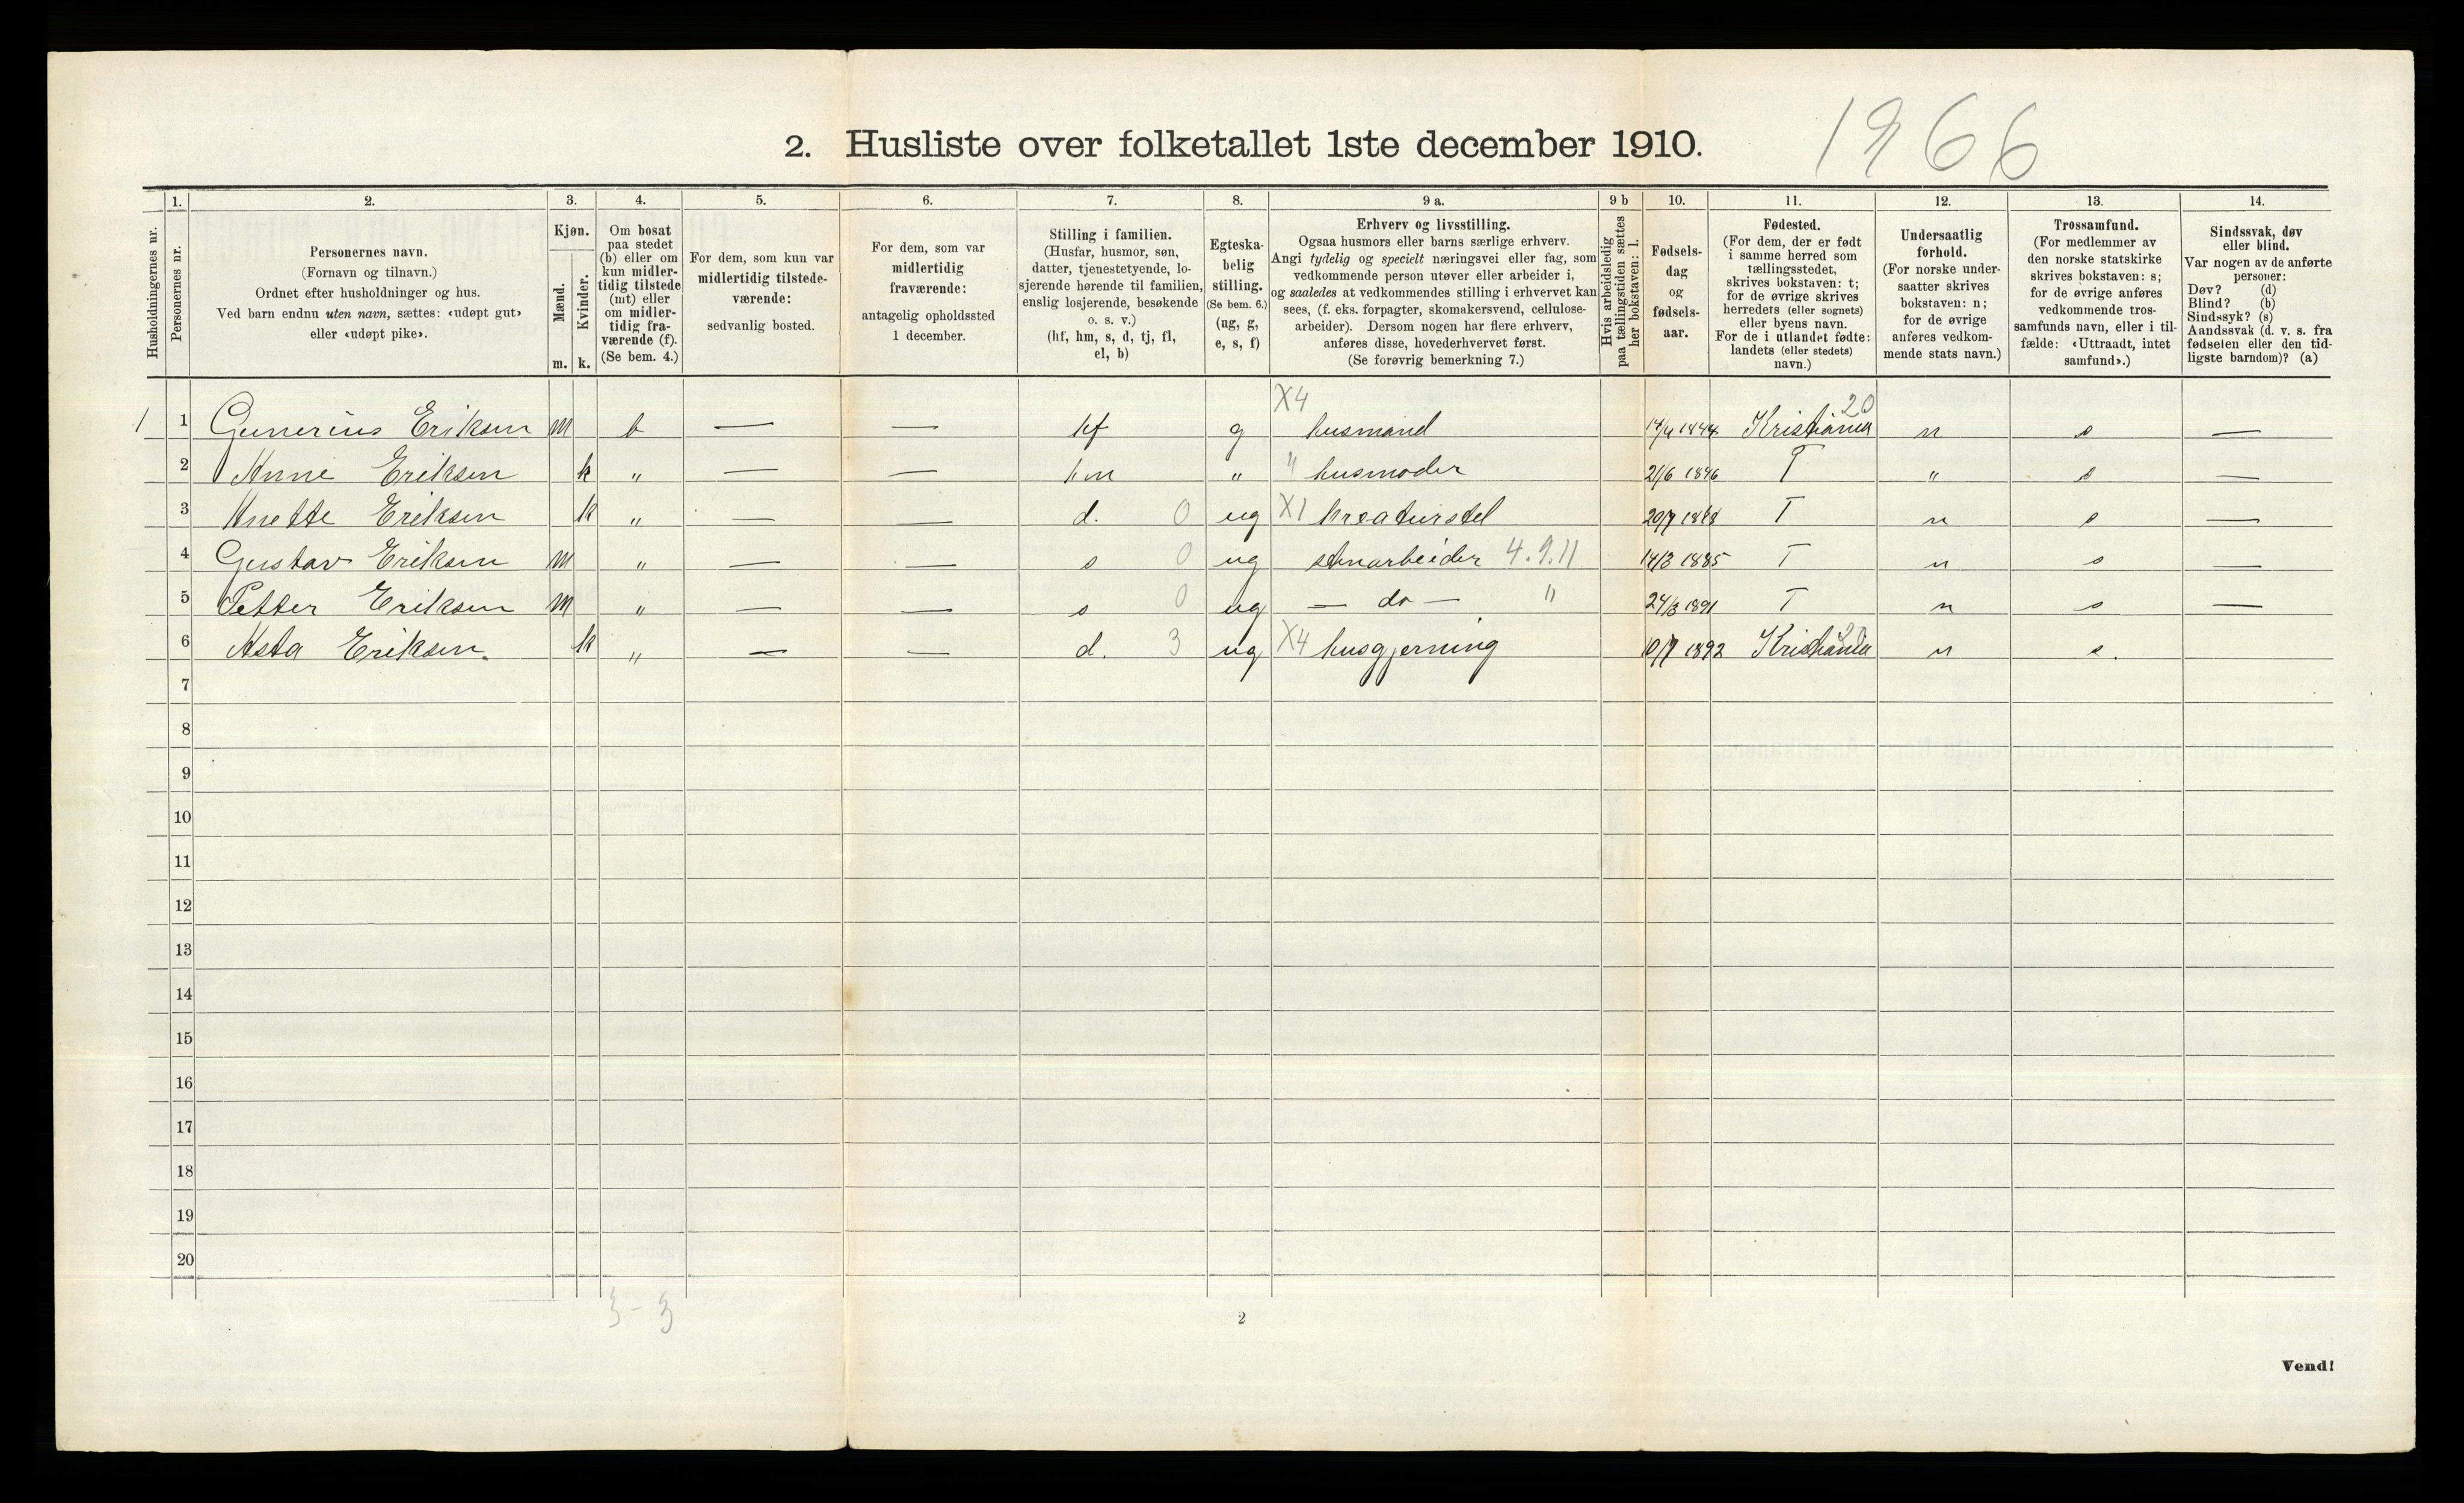 1966
2. Husliste over folketallet 1ste december 1910.
Husholdningernes nr.
1. Personernes nr.
2. Personernes navn. (Fornavn og tilnavn.) Ordnet efter husholdninger og hus. Ved barn endnu uten navn, sættes: «udøpt gut» eller «udøpt pike».
3. Kjøn. Mænd. m. Kvinder. k.
4. Om bosat paa stedet (b) eller om kun midlertidig tilstede (mt) eller om midlertidig fraværende (f). (Se bem. 4.)
5. For dem, som kun var midlertidig tilstedeværende: sedvanlig bosted.
6. For dem, som var midlertidig fraværende: antagelig opholdssted 1 december.
7. Stilling i familien. (Husfar, husmor, søn, datter, tjenestetyende, losjerende hørende til familien, enslig losjerende, besøkende o. s. v.) (hf, hm, s, d, tj, fl, el, b)
8. Egteskabelig stilling. (Se bem. 6.) (ug, g, e, s, f)
9 a. Erhverv og livsstilling. Ogsaa husmors eller barns særlige erhverv. Angi tydelig og specielt næringsvei eller fag, som vedkommende person utøver eller arbeider i, og saaledes at vedkommendes stilling i erhvervet kan sees, (f. eks. forpagter, skomakersvend, cellulosearbeider). Dersom nogen har flere erhverv, anføres disse, hovederhvervet først. (Se forøvrig bemerkning 7.)
9 b Hvis arbeidsledig paa tællingstiden sættes her bokstaven: l.
10. Fødselsdag og fødselsaar.
11. Fødested. (For dem, der er født i samme herred som tællingsstedet, skrives bokstaven: t; for de øvrige skrives herredets (eller sognets) eller byens navn. For de i utlandet fødte: landets (eller stedets) navn.)
12. Undersaatlig forhold. (For norske undersaatter skrives bokstaven: n; for de øvrige anføres vedkommende stats navn.)
13. Trossamfund. (For medlemmer av den norske statskirke skrives bokstaven: s; for de øvrige anføres vedkommende trossamfunds navn, eller i tilfælde: «Uttraadt, intet samfund».)
14. Sindssvak, døv eller blind. Var nogen av de anførte personer: Døv? (d) Blind? (b) Sindssyk? (s) Aandssvak (d. v. s. fra fødselen eller den tidligste barndom)? (a)
X4 20
1 1 Gunerius Eriksen m b — — hf g husmand 14/4 1844 Kristiania n s —
2 Anne Eriksen k " — — hm " " husmoder 21/6 1846 T " s —
3 Anette Eriksen k " — — d. 0 ug X1 kreaturstel T n s —
4 Gustav Eriksen m " — — s 0 ug stenarbeider 4.9.11 14/3 1885 T n s —
5 Petter Eriksen m " — — s 0 ug — do — " 24/3 1891 T n s —
6 Asta Eriksen. k " — — d. 3 ug X4 husgjerning 10/7 1892 Kristiania 20 n s.
7
8
9
10
11
12
13
14
15
16
17
18
19
20
3 - 3
2
Vend!